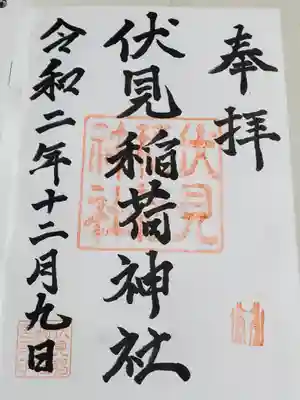 奉拝
伏見稲荷神社
令和二年十二月九日
伏見稲荷神社